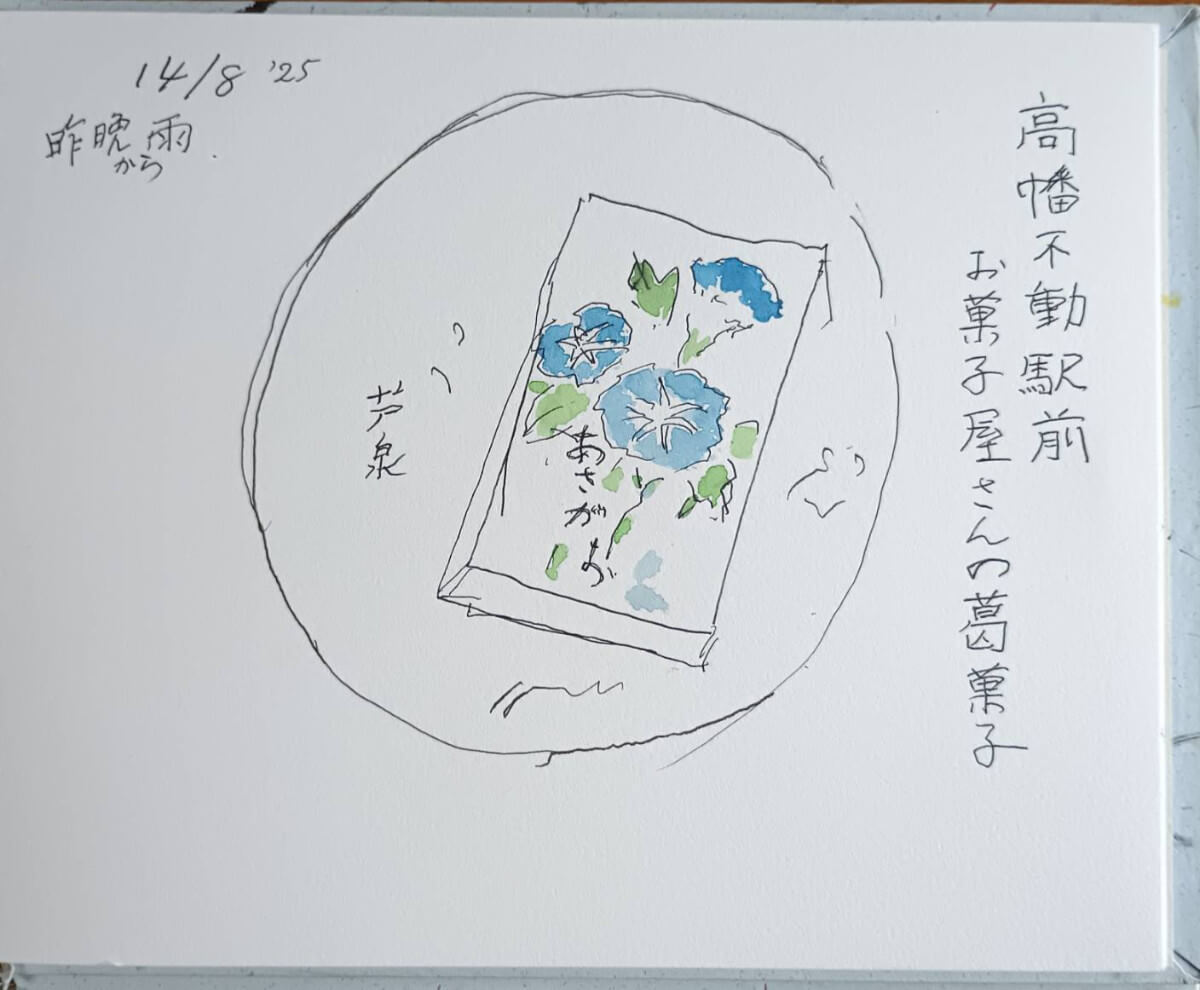 14/8 '25
昨晩から雨
高幡不動駅前
お菓子屋さんの葛菓子
芦泉
あさがお